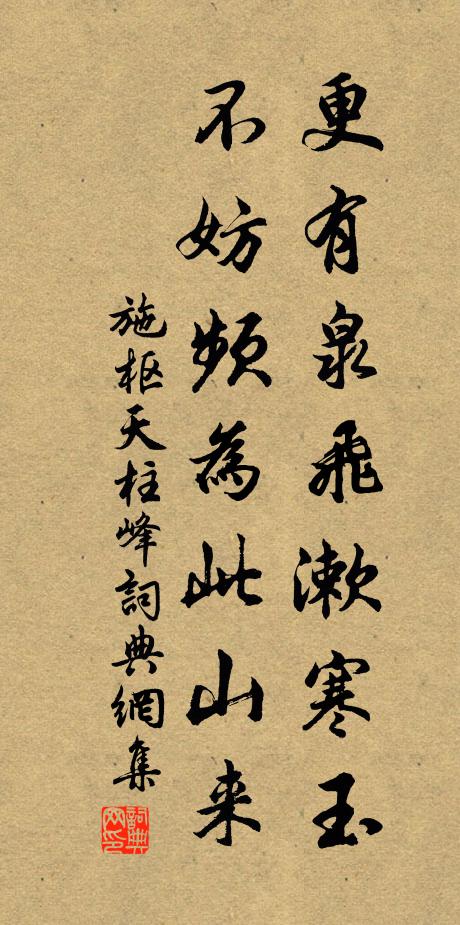 更有泉飛漱寒玉
不妨頻為此山来
施枢天柱峰詞典網集
詞典网印